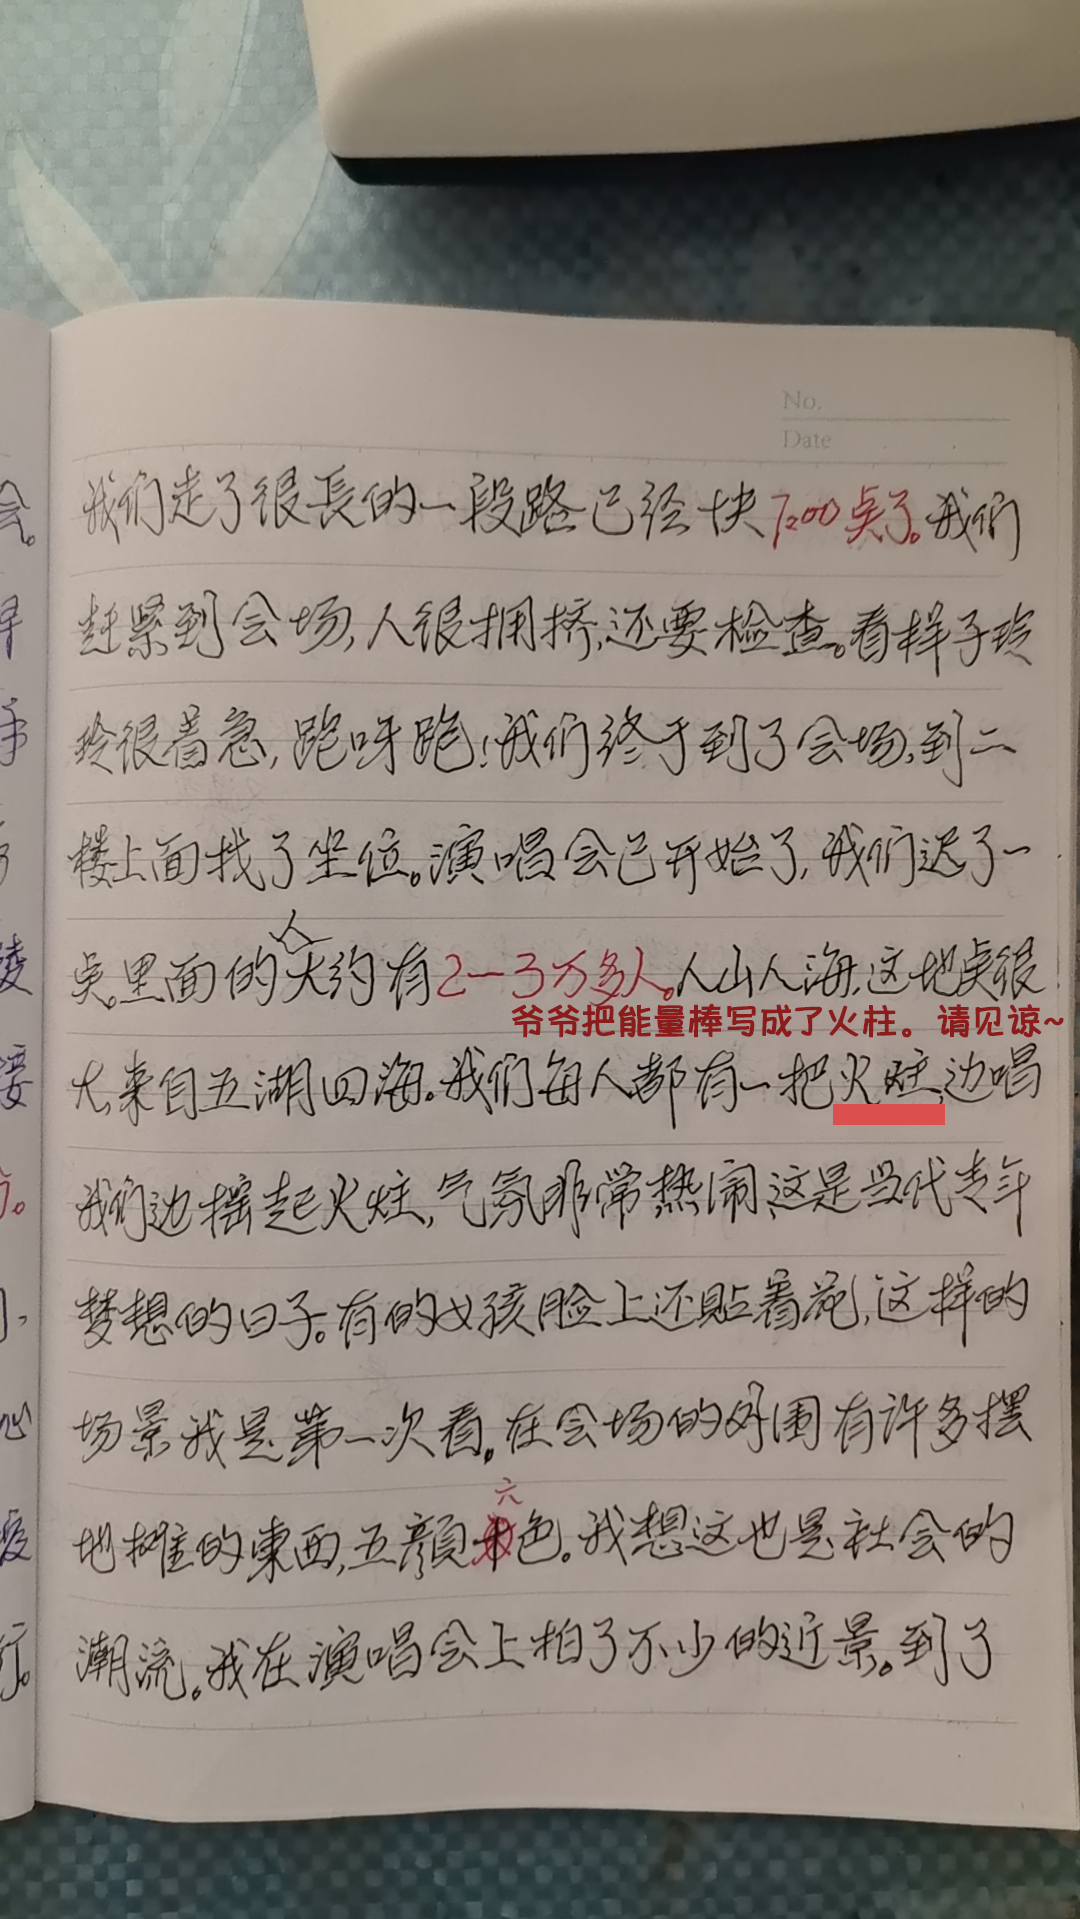 No.
Date
我们走了很長的一段路已经快7:00点了。我们
赶紧到会场,人很拥挤,还要检查。看样子玲
玲很着急,跑呀跑!我们终于到了会场,到二
楼上面找了坐位。演唱会已开始了,我们迟了一
点。里面的人大约有2一3万多人。人山人海,这地点很
爷爷把能量棒写成了火柱。请见谅~
大,来自五湖四海。我们每人都有一把火炷,边唱
我们边摇起火炷,气氛非常热闹,这是当代青年
梦想的日子。有的女孩脸上还贴着花,这样的
场景我是第一次看。在会场的外围有许多摆
六
地摊的東西,五顏色。我想这也是社会的
潮流。我在演唱会上拍了不少的近景。到了
会。